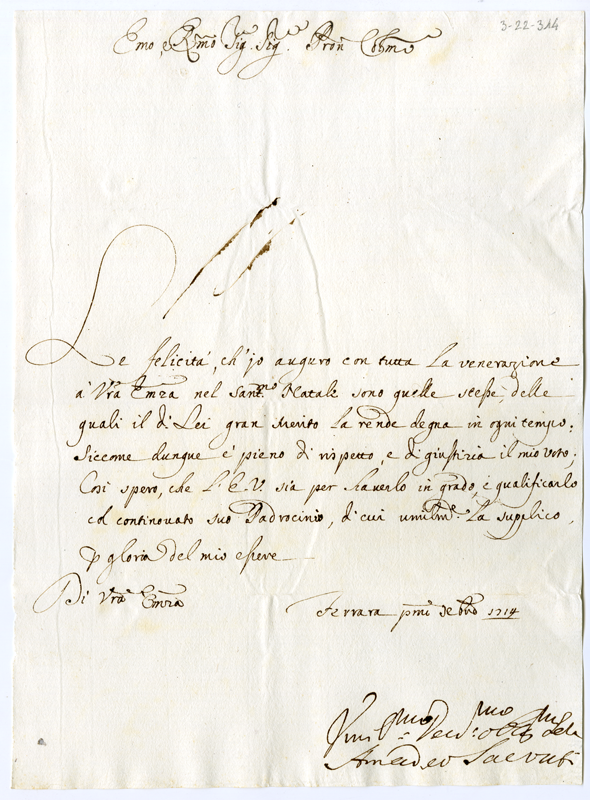 3-22-314
Emo, e Rmo Sig. Sig.e Pron Colmo
Le felicità, ch'jo auguro con tutta la venerazione
à Vrã Emza nel Santmo Natale sono quelle stesse, delle
quali il di Lei gran merito la rende degna in ogni tempo:
Siccome dunque è pieno di rispetto, e di giustizia il mio voto;
Così spero, che l'E.V. sia per haverlo in grado, è qualificarlo
col continovato suo Padrocinio, di cui umilme. La supplico,
p gloria del mio essere
Di Vrã Emza
Ferrara pmi Xebre 1714
Umilmo Devmo
Amadeo